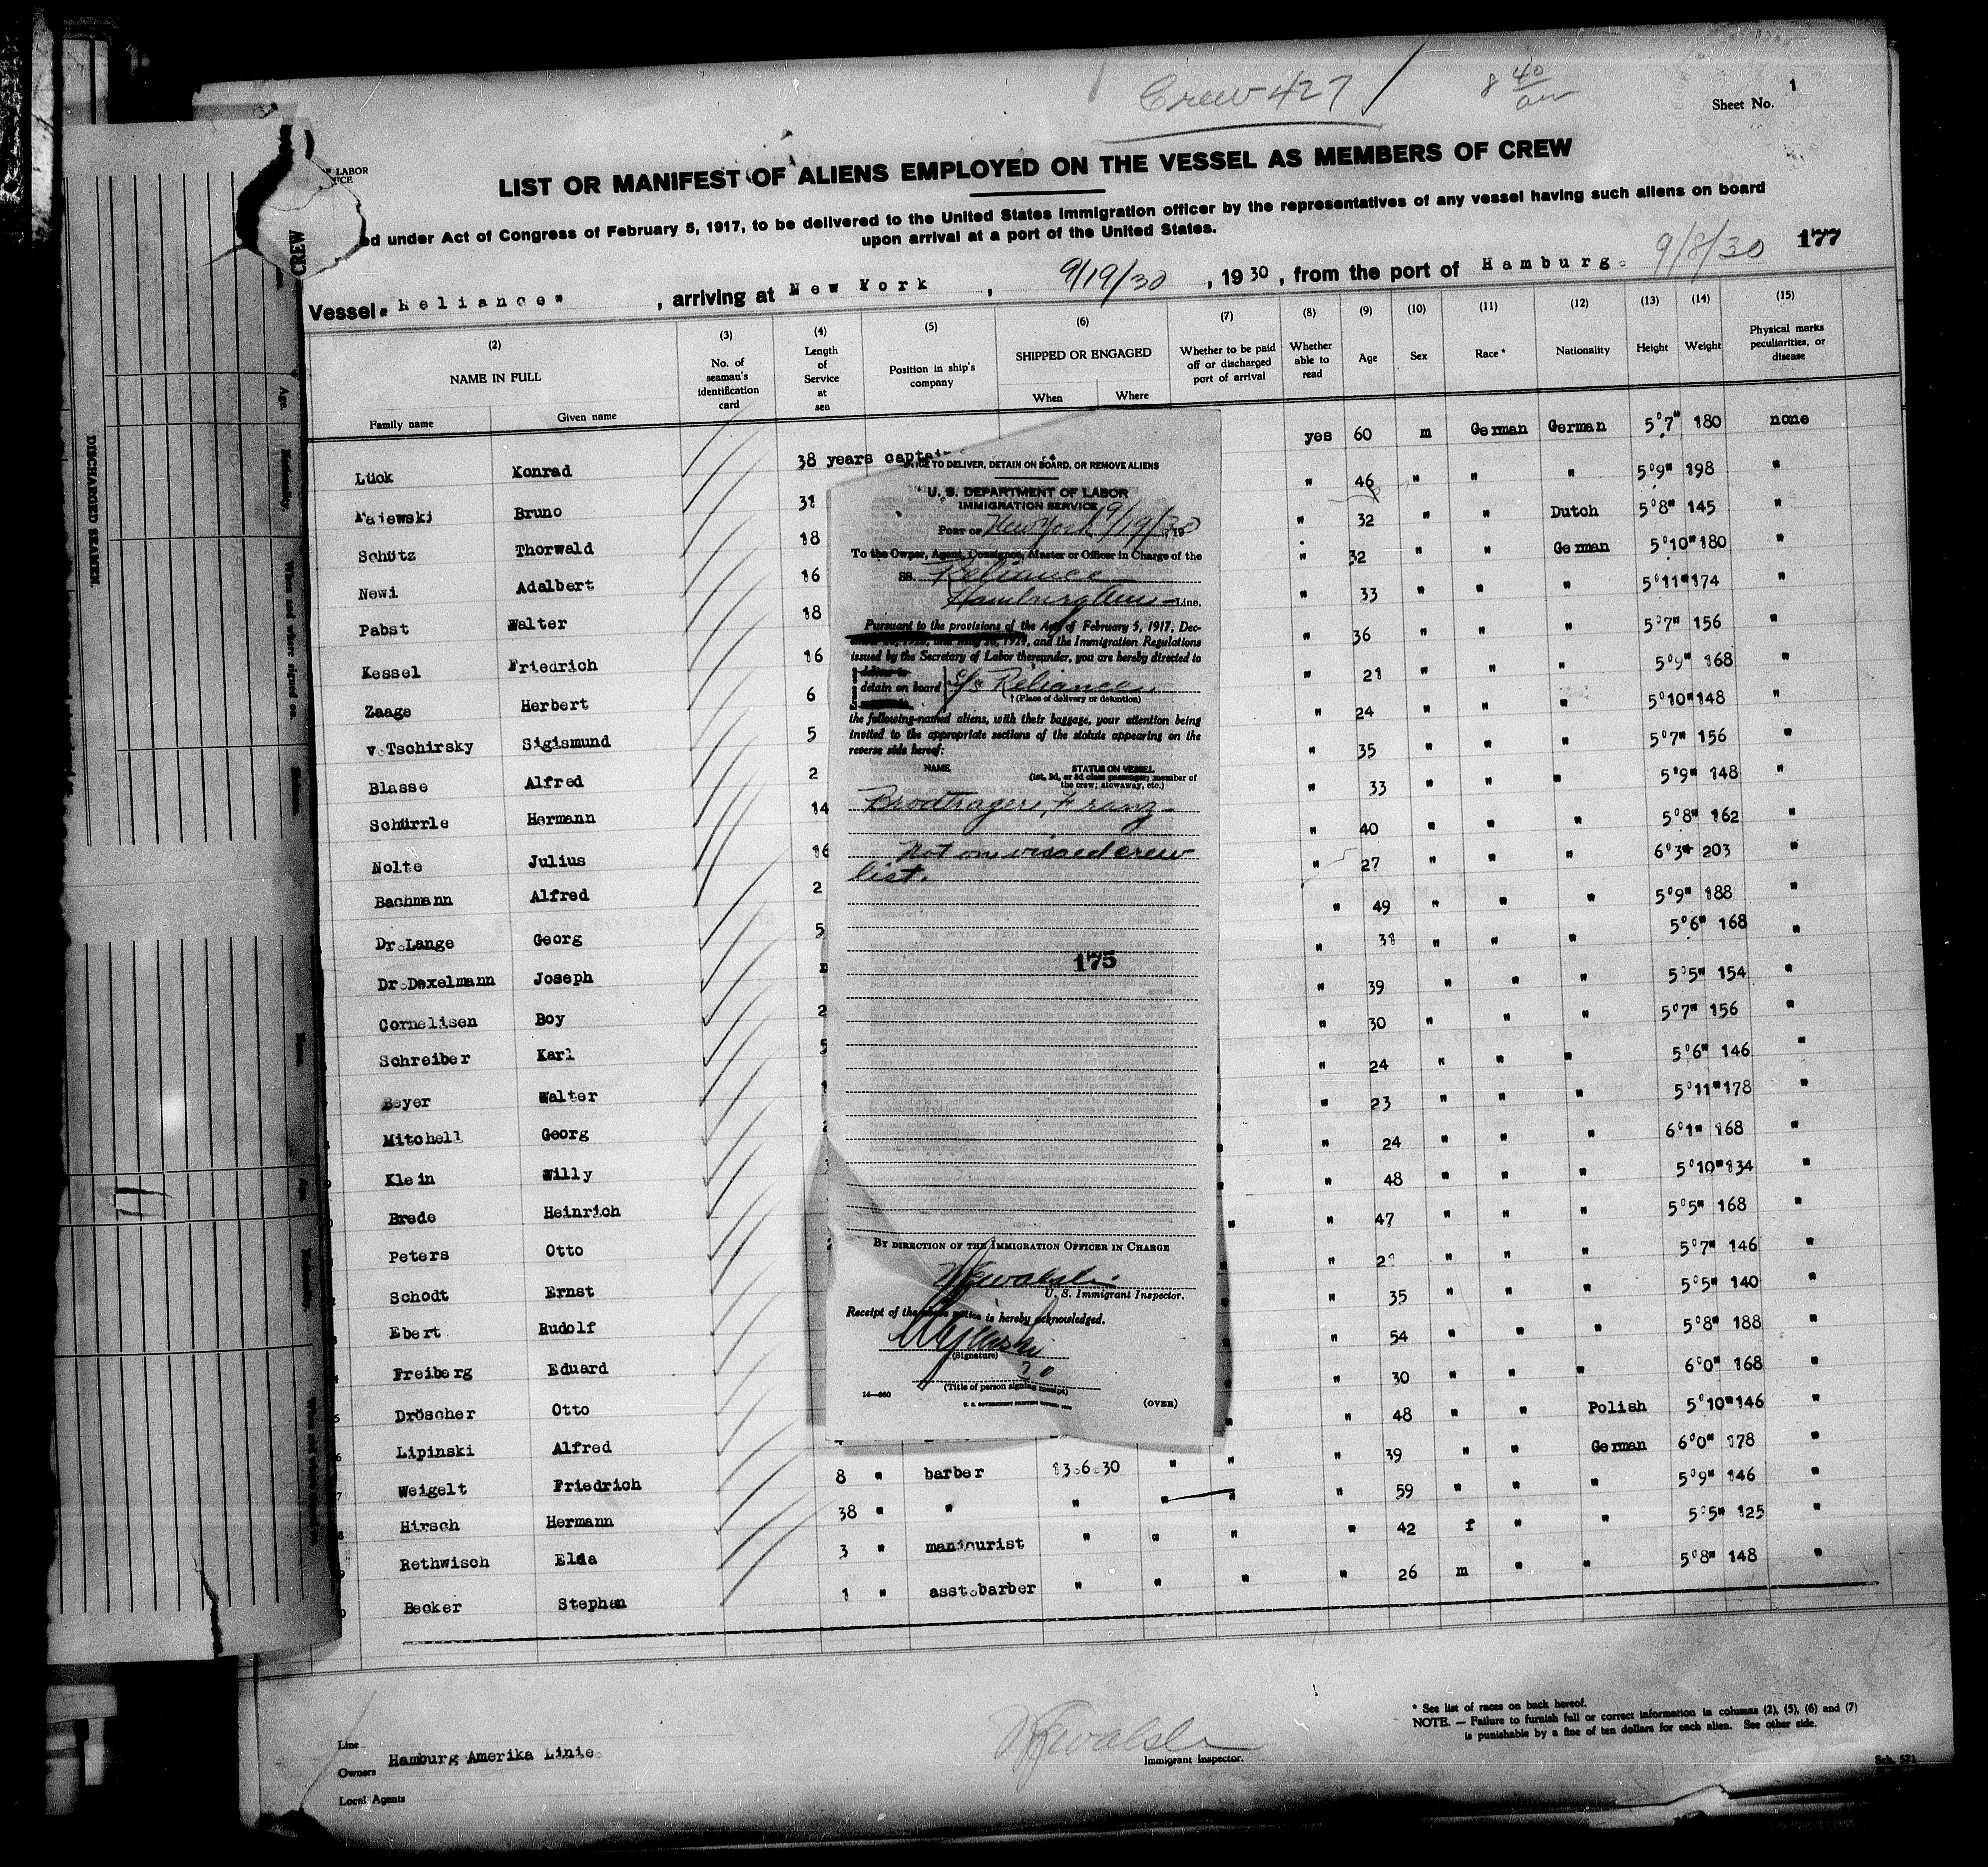 Crew 427
8 40/am
Sheet No. 1
LABOR
LIST OR MANIFEST OF ALIENS EMPLOYED ON THE VESSEL AS MEMBERS OF CREW
under Act of Congress of February 5, 1917, to be delivered to the United States immigration officer by the representatives of any vessel having such aliens on board
upon arrival at a port of the United States.
9/8/30 177
Vessel "Reliance" , arriving at New York , 9/19/30 , 1930 , from the port of Hamburg.
(2) (3) (4) (5) (6) (7) (8) (9) (10) (11) (12) (13) (14) (15)
NAME IN FULL
Family name Given name
No. of seaman's identification card
Length of Service at sea
Position in ship's company
SHIPPED OR ENGAGED
When Where
Whether to be paid off or discharged port of arrival
Whether able to read
Age Sex Race * Nationality Height Weight
Physical marks peculiarities, or disease
Lück Konrad 38 years captain yes 60 m German German 5°7" 180 none
Bruno 31 " 46 " " " 5°9" 198 "
Schütz Thorwald 18 " 32 " " Dutch 5°8" 145 "
Newi Adalbert 16 " 32 " " German 5°10" 180 "
Pabst Walter 18 " 33 " " " 5°11" 174 "
Kessel Friedrich 16 " 36 " " " 5°7" 156 "
Zaage Herbert 6 " 21 " " " 5°9" 168 "
v.Tschirsky Sigismund 5 " 24 " " " 5°10" 148 "
Blasse Alfred 2 " 35 " " " 5°7" 156 "
Schürrle Hermann 14 " 33 " " " 5°9" 148 "
Nolte Julius 16 " 40 " " " 5°8" 162 "
Bachmann Alfred 2 " 27 " " " 6°3" 203 "
Dr.Lange Georg 5 " 49 " " " 5°9" 188 "
Dr.Dexelmann Joseph " 31 " " " 5°6" 168 "
Cornelisen Boy 2 " 39 " " " 5°5" 154 "
Schreiber Karl 5 " 30 " " " 5°7" 156 "
Beyer Walter " 24 " " " 5°6" 146 "
Mitchell Georg " 23 " " " 5°11" 178 "
Klein Willy " 24 " " " 6°1" 168 "
Brede Heinrich " 48 " " " 5°10" 134 "
Peters Otto " 47 " " " 5°5" 168 "
Schodt Ernst " " " " 5°7" 146 "
Ebert Rudolf " 35 " " " 5°5" 140 "
Freiberg Eduard " 54 " " " 5°8" 188 "
Dröscher Otto " 30 " " " 6°0" 168 "
Lipinski Alfred " 48 " " Polish 5°10" 146 "
Weigelt Friedrich 8 " barber 13.6.30 " " " 39 " " German 6°0" 178 "
Hirsch Hermann 38 " " " " " " 59 " " " 5°9" 146 "
Rethwisch Elda 3 " manicurist " " " " 42 f " " 5°5" 125 "
Becker Stephan 1 " asst.barber " " " " 26 m " " 5°8" 148 "
TO DELIVER, DETAIN ON BOARD, OR REMOVE ALIENS
U. S. DEPARTMENT OF LABOR
IMMIGRATION SERVICE
Port of New York 9/19/30, 19
To the Owner, Agent, Consignee, Master or Officer in Charge of the
SS. Reliance
Hamburg Amer Line.
Pursuant to the provisions of the Act of February 5, 1917, Dec-
and the Immigration Regulations
issued by the Secretary of Labor thereunder, you are hereby directed to
detain on board S/S Reliance
† (Place of delivery or detention)
the following-named aliens, with their baggage, your attention being
invited to the appropriate sections of the statute appearing on the
reverse side hereof:
NAME STATUS ON VESSEL
(1st, 2d, or 3d class passenger; member of
the crew; stowaway, etc.)
Brodtragers, Franz
Not on visaed crew
list.
175
By direction of the Immigration Officer in Charge
U. S. Immigrant Inspector.
Receipt of the above notice is hereby acknowledged.
(Signature)
(Title of person signing receipt)
(OVER)
Line
Owners Hamburg Amerika Linie
Local Agents
Immigrant Inspector.
* See list of races on back hereof.
NOTE. — Failure to furnish full or correct information in columns (2), (5), (6) and (7)
is punishable by a fine of ten dollars for each alien. See other side.
DISCHARGED SEAMEN.
CREW
Age.
Nationality.
When and where signed on.